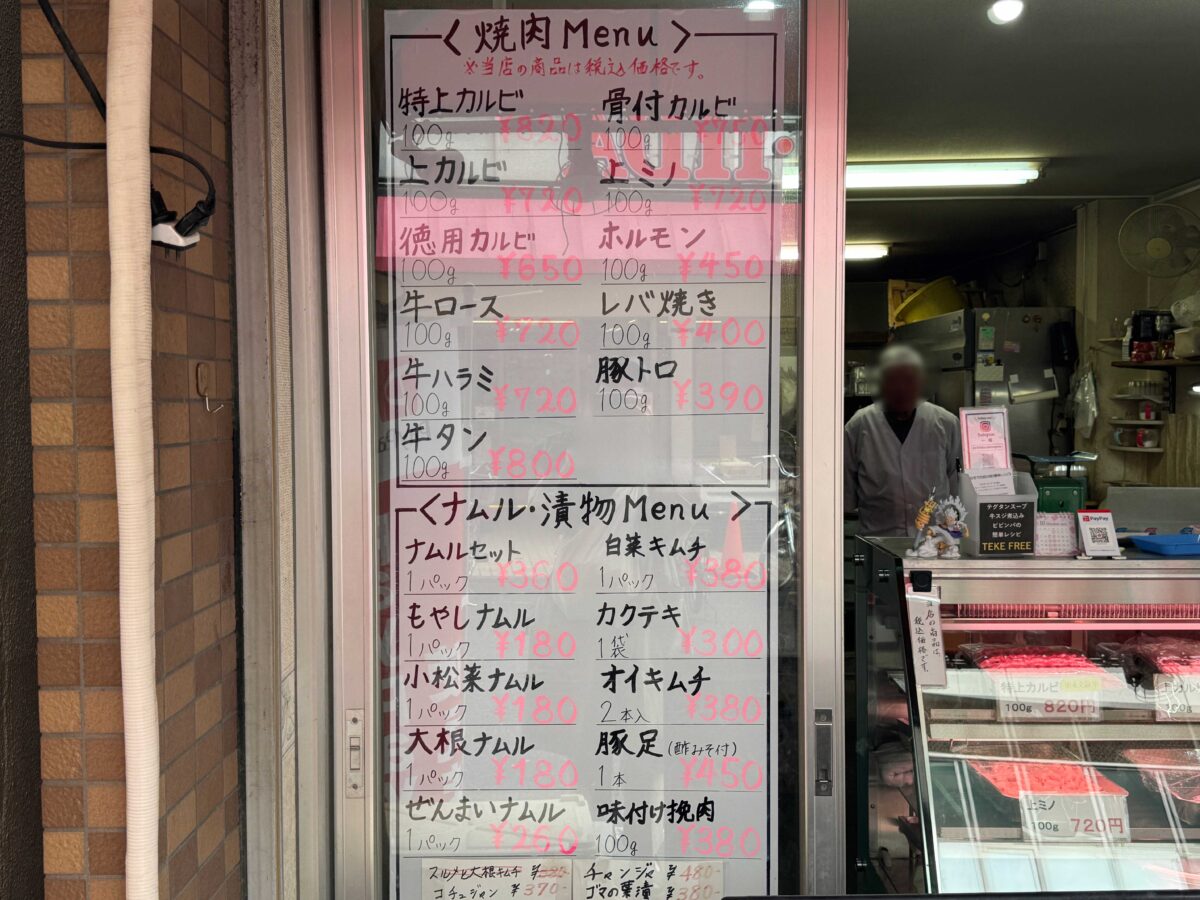 <焼肉Menu>
※当店の商品は税込価格です。
特上カルビ
100g ¥820
上カルビ
100g ¥720
徳用カルビ
100g ¥650
牛ロース
100g ¥720
牛ハラミ
100g ¥720
牛タン
100g ¥800
骨付カルビ
100g ¥750
上ミノ
100g ¥720
ホルモン
100g ¥450
レバ焼き
100g ¥400
豚トロ
100g ¥390
<ナムル・漬物Menu>
ナムルセット
1パック ¥360
もやしナムル
1パック ¥180
小松菜ナムル
1パック ¥180
大根ナムル
1パック ¥180
ぜんまいナムル
1パック ¥260
白菜キムチ
1パック ¥380
カクテキ
1袋 ¥300
オイキムチ
2本入 ¥380
豚足(酢みそ付)
1本 ¥450
味付け挽肉
100g ¥380
スルメと大根キムチ
コチュジャン ¥370-
チャンジャ ¥480-
ゴマの葉漬 ¥380-
Instagram
テグタンスープ
牛スジ煮込み
ビビンバの
簡単レシピ
TEKE FREE
PayPay
当店の商品は、
税込価格です。
特上カルビ
100g 820円
上カル
100g
上ミノ
100g 720円